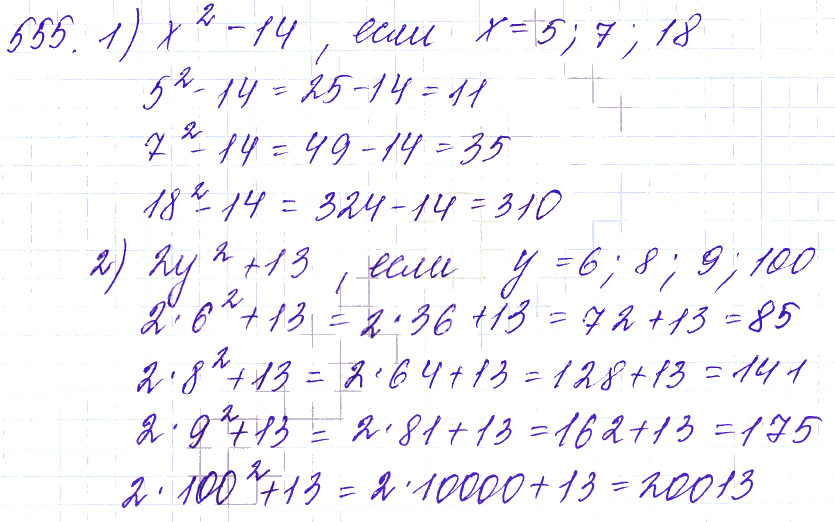 555. 1) x² - 14 , если x = 5 ; 7 ; 18
5² - 14 = 25 - 14 = 11
7² - 14 = 49 - 14 = 35
18² - 14 = 324 - 14 = 310
2) 2y² + 13 , если y = 6 ; 8 ; 9 ; 100
2 · 6² + 13 = 2 · 36 + 13 = 72 + 13 = 85
2 · 8² + 13 = 2 · 64 + 13 = 128 + 13 = 141
2 · 9² + 13 = 2 · 81 + 13 = 162 + 13 = 175
2 · 100² + 13 = 2 · 10000 + 13 = 20013